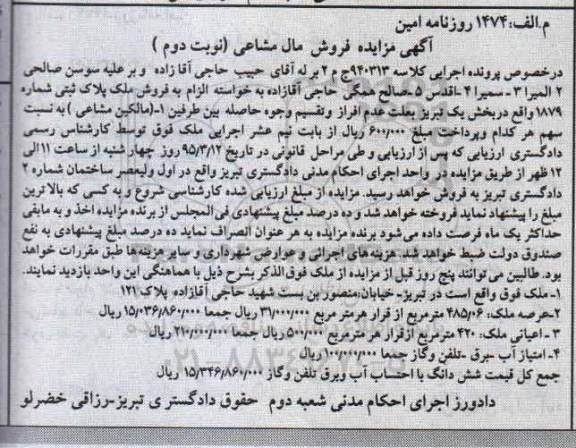 م.الف:۱۴۷۴ روزنامه امین
آگهی مزایده فروش مال مشاعی (نوبت دوم )
درخصوص پرونده اجرایی کلاسه ۹۴۰۳۱۳ج م ۲ بر له آقای حبیب حاجی آقا زاده و بر علیه سوسن صالحی
۲ المیرا ۳- سمیرا ۴-اقدس ۵-صالح همگی حاجی آقازاده به خواسته الزام به فروش ملک پلاک ثبتی شماره
۱۸۷۹ واقع دربخش یک تبریز بعلت عدم افراز وتقسیم وجوه حاصله بین طرفین ۱-(مالکین مشاعی ) به نسبت
سهم هر کدام وپرداخت مبلغ ۶۰۰/۰۰۰ ریال از بابت نیم عشر اجرایی ملک فوق توسط کارشناس رسمی
دادگستری ارزیابی که پس از ارزیابی و طی مراحل قانونی در تاریخ ۹۵/۳/۱۲ روز چهار شنبه از ساعت ۱۱ الی
۱۲ ظهر از طریق مزایده در واحد اجرای احکام مدنی دادگستری تبریز واقع در اول ولیعصر ساختمان شماره ۲
دادگستری تبریز به فروش خواهد رسید. مزایده از مبلغ ارزیابی شده کارشناسی شروع و به کسی که بالا ترین
مبلغ را پیشنهاد نماید فروخته خواهد شد و ده درصد مبلغ پیشنهادی فی المجلس از برنده مزایده اخذ و به مابقی
حداکثر یک ماه فرصت داده می‌شود برنده مزایده به هر عنوان انصراف نماید ده درصد مبلغ پیشنهادی به نفع
صندوق دولت ضبط خواهد شد. هزینه‌های اجرائی و عوارض شهرداری و سایر هزینه‌ها طبق مقررات خواهد
بود. طالبین می توانند پنج روز قبل از مزایده از ملک فوق‌الذکر بشرح ذیل با هماهنگی این واحد بازدید نمایند.
۱-ملک فوق واقع است در تبریز- خیابان منصور بن بست شهید حاجی آقازاده پلاک ۱۲۱
۲-عرصه ملک: ۴۸۵/۰۶ مترمربع از قرار هرمتر مربع ۳۱/۰۰۰/۰۰۰ ریال جمعا ۱۵/۰۳۶/۸۶۰/۰۰۰ ریال
۳- اعیانی ملک: ۴۲۰ مترمربع ازقرار هر مترمربع ۵۰۰/۰۰۰ ریال جمعا ۲۱۰/۰۰۰/۰۰۰ ریال
۴- امتیاز آب -برق -تلفن وگاز جمعا ۱۰۰/۰۰۰/۰۰۰ ریال
جمع کل قیمت شش دانگ با احتساب آب وبرق تلفن وگاز ۱۵/۳۴۶/۸۶۰/۰۰۰ ریال
دادورز اجرای احکام مدنی شعبه دوم حقوق دادگستری تبریز-رزاقی خضرلو